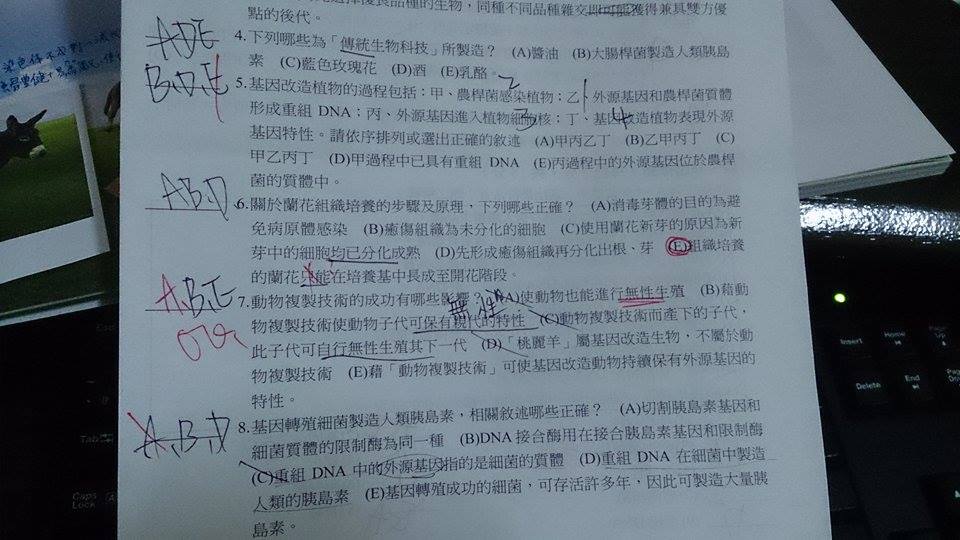 點的後代。
ADE
4.下列哪些為「傳統生物科技」所製造? (A)醬油 (B)大腸桿菌製造人類胰島
素 (C)藍色玫瑰花 (D)酒 (E)乳酪。
B.D.E
5.基因改造植物的過程包括:甲、農桿菌感染植物;乙、外源基因和農桿菌質體
形成重組 DNA;丙、外源基因進入植物細胞核;丁、基因改造植物表現外源
基因特性。請依序排列或選出正確的敘述 (A)甲丙乙丁 (B)乙甲丙丁 (C)
甲乙丙丁 (D)甲過程中已具有重組 DNA (E)丙過程中的外源基因位於農桿
菌的質體中。
ABD
6.關於蘭花組織培養的步驟及原理,下列哪些正確? (A)消毒芽體的目的為避
免病原體感染 (B)癒傷組織為未分化的細胞 (C)使用蘭花新芽的原因為新
芽中的細胞均已分化成熟 (D)先形成癒傷組織再分化出根、芽 (E)組織培養
的蘭花只能在培養基中長成至開花階段。
A.B.E
7.動物複製技術的成功有哪些影響? (A)使動物也能進行無性生殖 (B)藉動
無性
物複製技術使動物子代可保有親代的特性 (C)動物複製技術而產下的子代,
此子代可自行無性生殖其下一代 (D)「桃麗羊」屬基因改造生物,不屬於動
物複製技術 (E)藉「動物複製技術」可使基因改造動物持續保有外源基因的
特性。
A.B.D
8.基因轉殖細菌製造人類胰島素,相關敘述哪些正確? (A)切割胰島素基因和
細菌質體的限制酶為同一種 (B)DNA 接合酶用在接合胰島素基因和限制酶
(C)重組 DNA 中的外源基因指的是細菌的質體 (D)重組 DNA 在細菌中製造
人類的胰島素 (E)基因轉殖成功的細菌,可存活許多年,因此可製造大量胰
島素。
Insert
Home
Delete
End
Tab
Caps
Lock